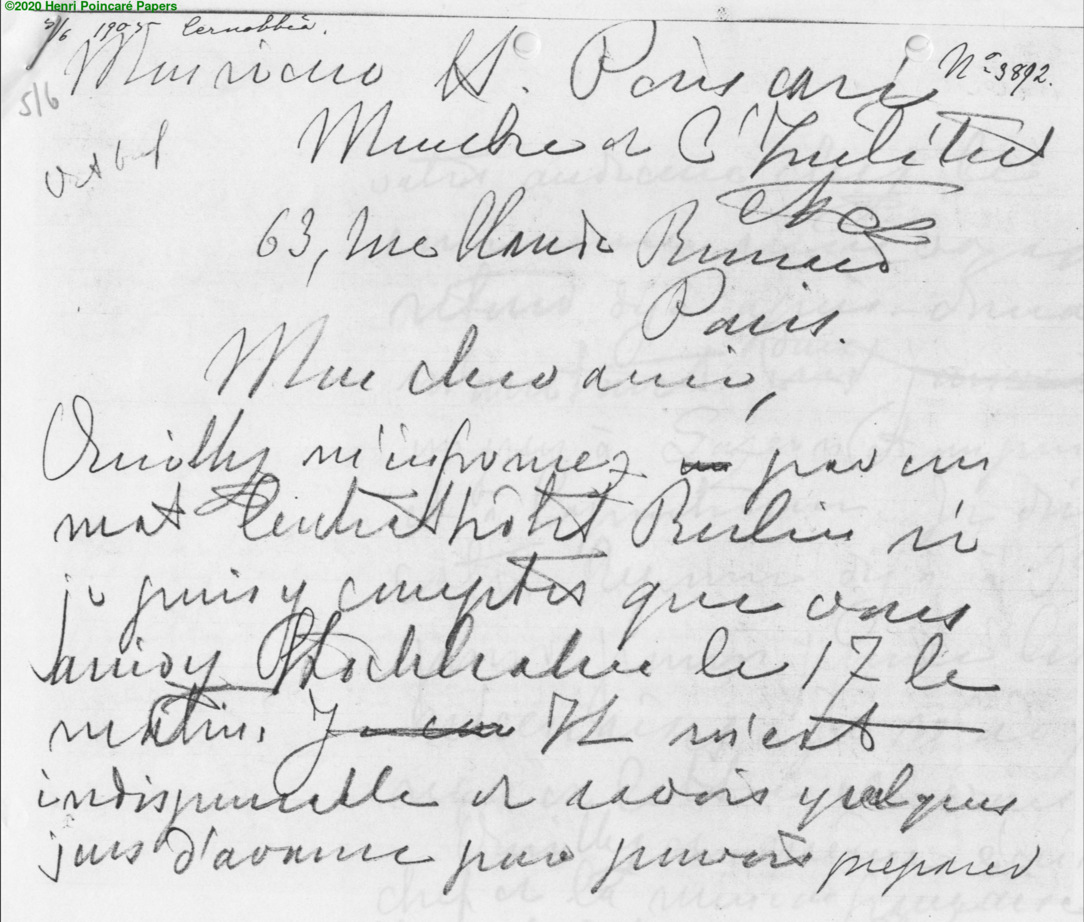 ©2020 Henri Poincaré Papers
5/6 1905 Cernobbio.
Monsieur H. Poincaré No 3892.
5/6
Membre de l'Institut
63, rue Claude Bernard
Paris.
Mon cher ami,
Veuillez m'informer par un
mot Centralhôtel Berlin si
je puis y compter que vous
à Stockholm le 17 le
matin. Il m'est
indispensable de savoir quelques
jours d'avance pour pouvoir préparer